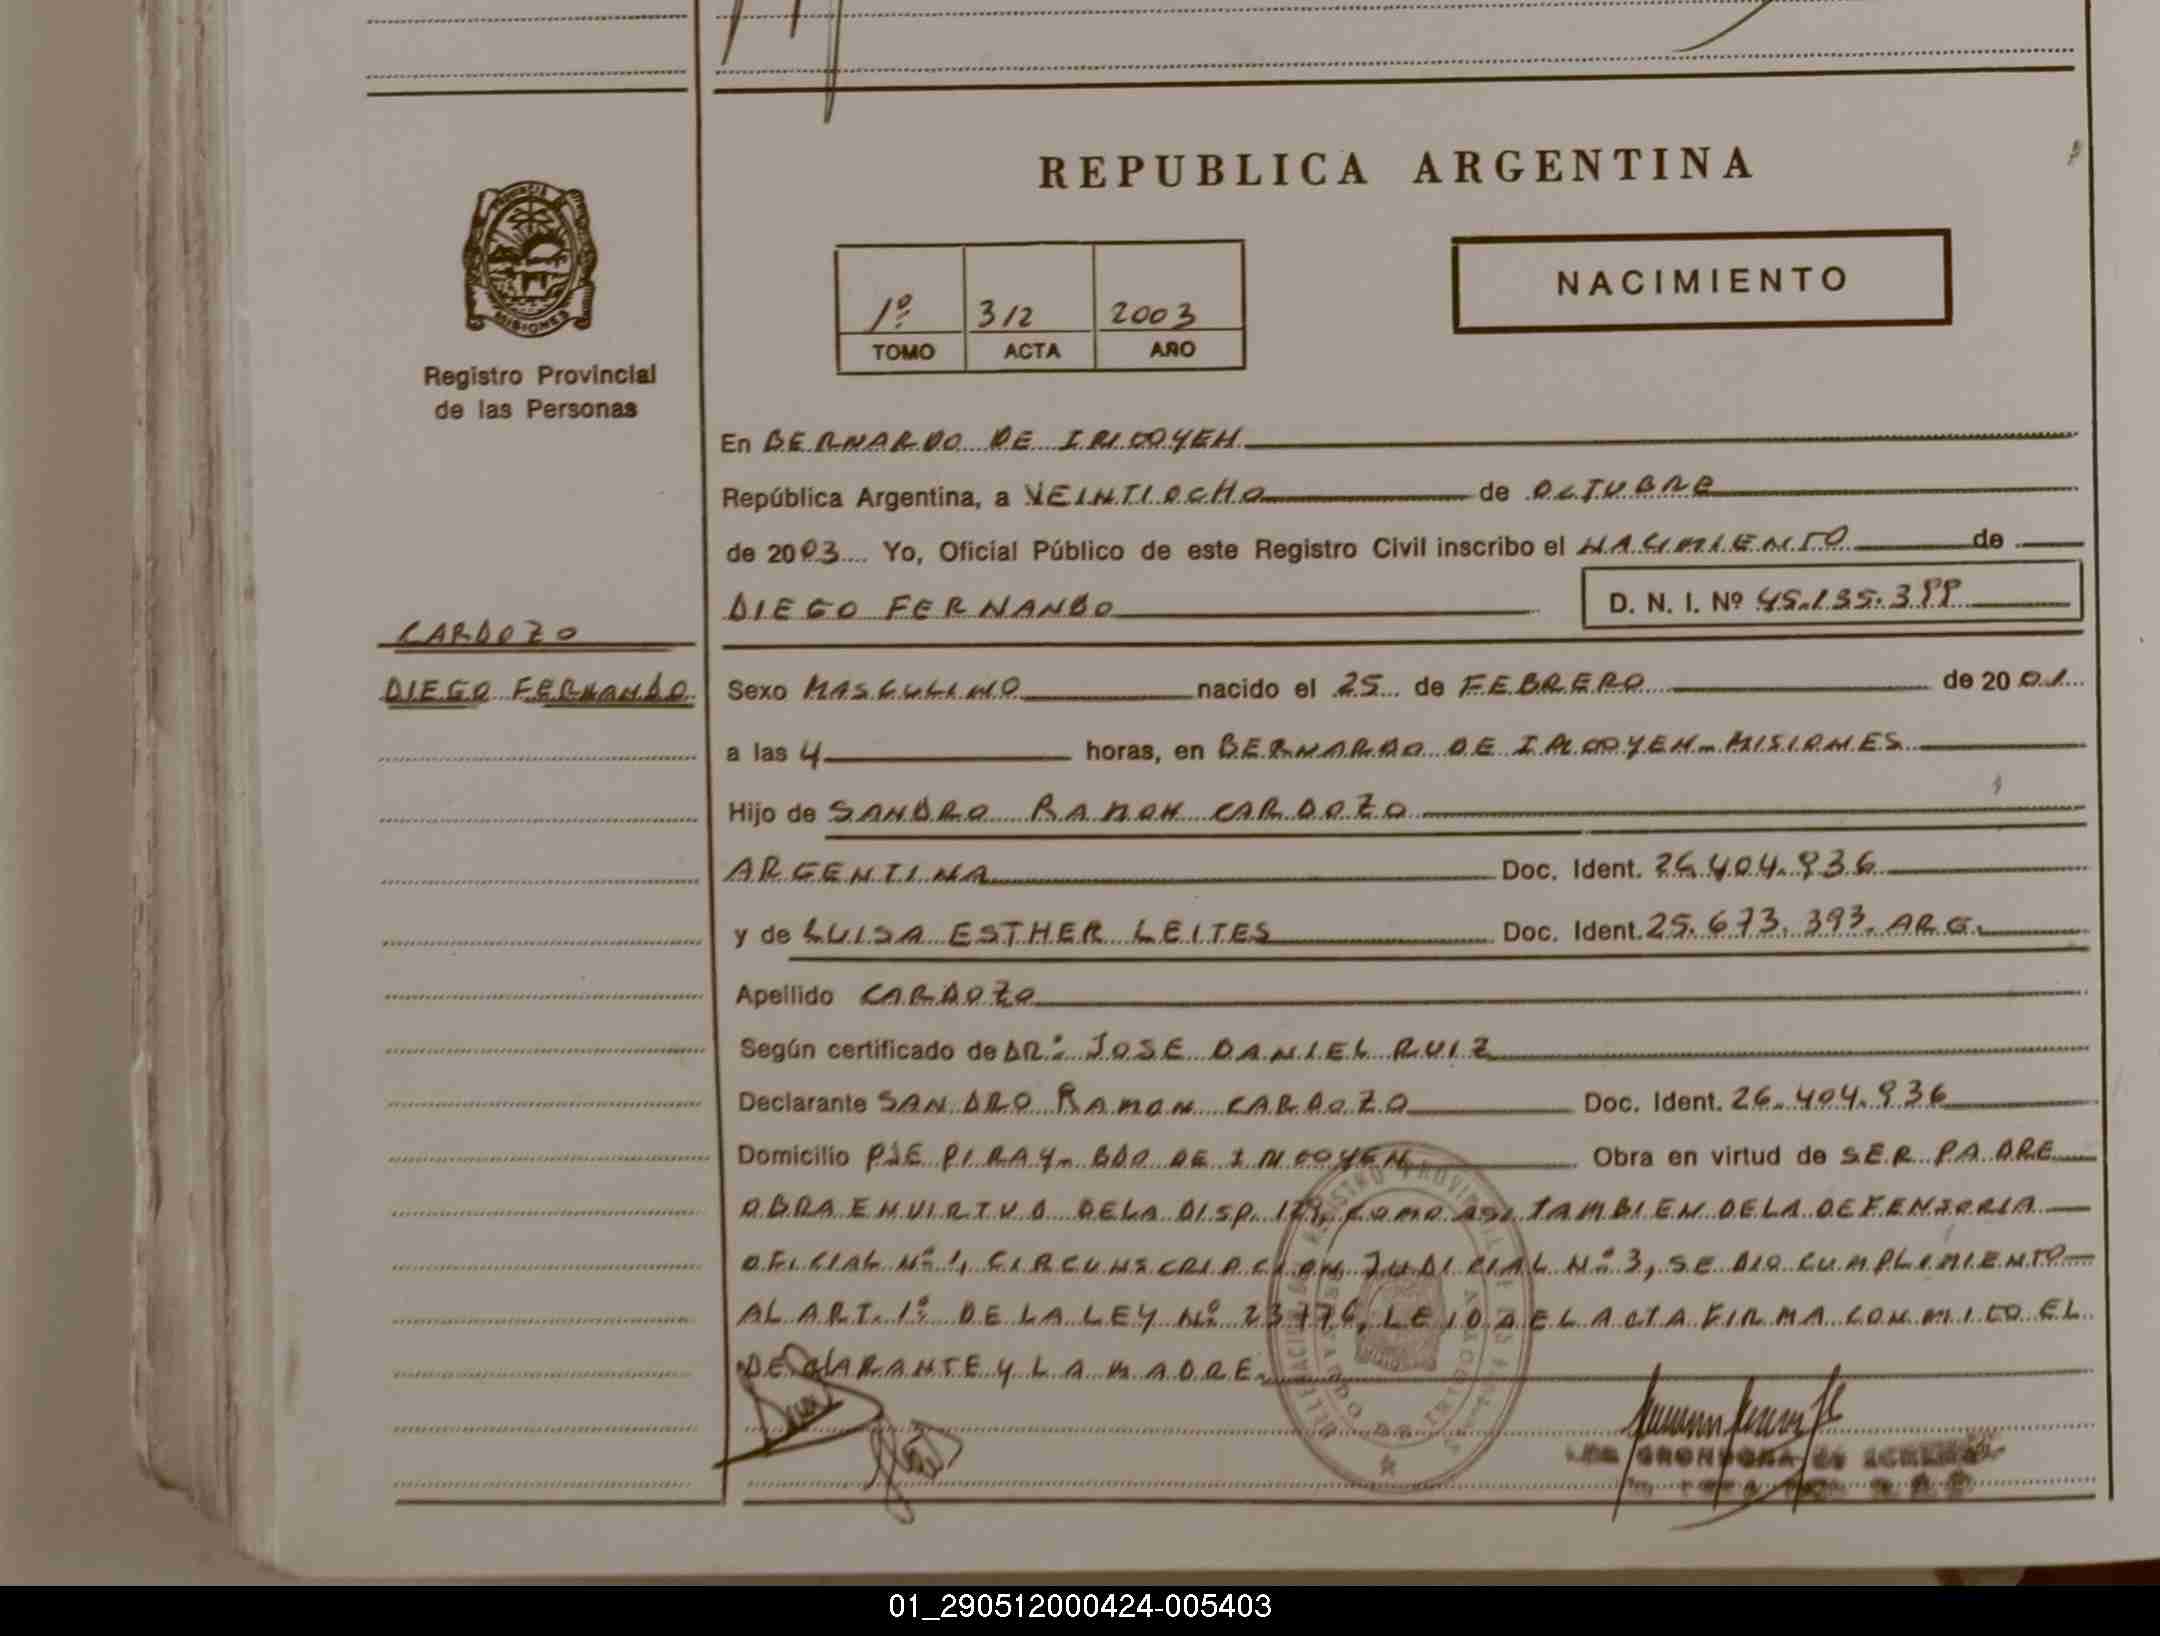 REPUBLICA ARGENTINA
PROVINCIA
MISIONES
Registro Provincial
de las Personas
1º 312 2003
TOMO ACTA AÑO
NACIMIENTO
En BERNARDO DE IRIGOYEN
República Argentina, a VEINTIOCHO de OCTUBRE
de 2003 Yo, Oficial Público de este Registro Civil inscribo el NACIMIENTO de
DIEGO FERNANDO D. N. I. Nº 45.135.399
CARDOZO
DIEGO FERNANDO
Sexo MASCULINO nacido el 25 de FEBRERO de 2001
a las 4 horas, en BERNARDO DE IRIGOYEN-MISIONES
Hijo de SANDRO RAMON CARDOZO
ARGENTINA Doc. Ident. 26.404.936
y de LUISA ESTHER LEITES Doc. Ident. 25.673.393. ARG.
Apellido CARDOZO
Según certificado de DR: JOSE DANIEL RUIZ
Declarante SANDRO RAMON CARDOZO Doc. Ident. 26.404.936
Domicilio PJE PIRAY- BDO DE IRIGOYEN Obra en virtud de SER PADRE
OBRA EN VIRTUD DE LA DISP. COMO ASI TAMBIEN DE LA DEFENSORIA
OFICIAL Nº 1, CIRCUNSCRIPCION JUDICIAL Nº 3, SE DIO CUMPLIMIENTO
AL ART. 1º DE LA LEY Nº 23776, LEIDA EL ACTA FIRMA CONMIGO EL
DECLARANTE Y LA MADRE.
01_290512000424-005403